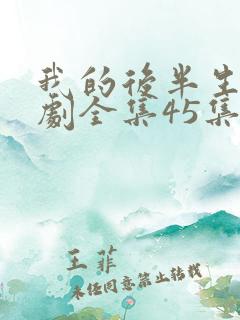 我的後半生
劇全集45集
王菲
未經同意禁止轉載